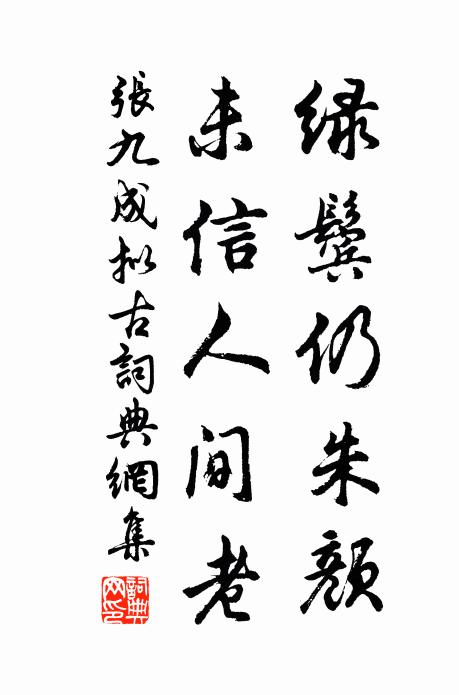 绿鬓仍朱颜
未信人间老
張九成拟古詞典網集
詞典网印